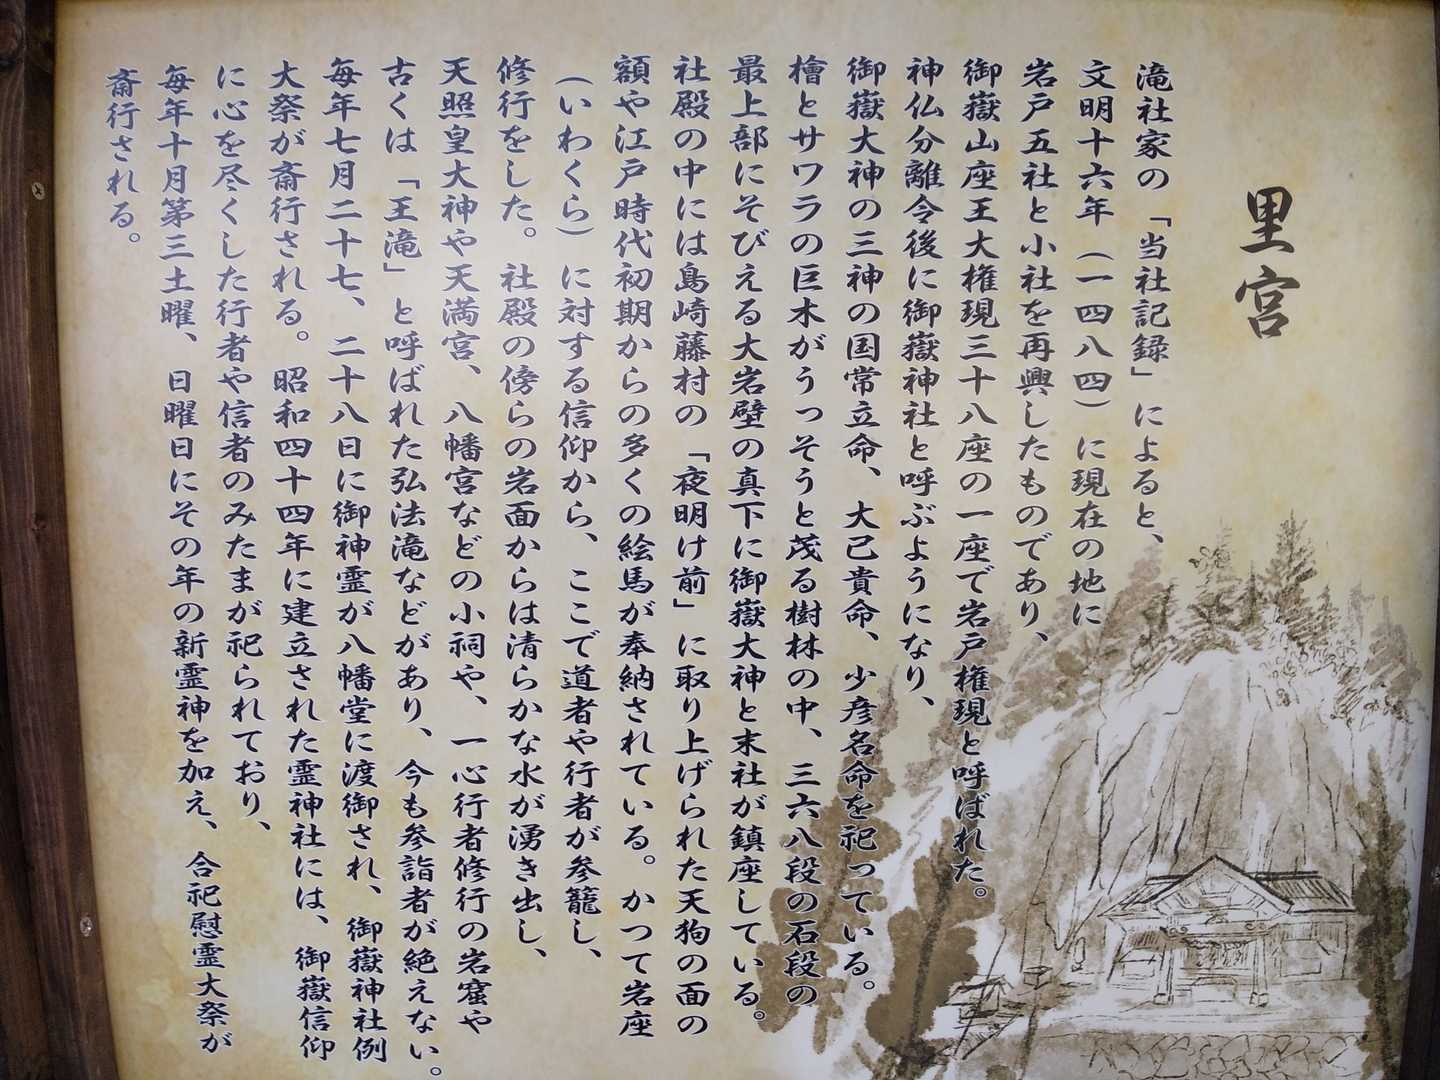 里宮
滝社家の「当社記録」によると、
文明十六年（一四八四）に現在の地に
岩戸五社と小社を再興したものであり、
御嶽山座王大権現三十八座の一座で岩戸権現と呼ばれた。
神仏分離令後に御嶽神社と呼ぶようになり、
御嶽大神の三神の国常立命、大己貴命、少彦名命を祀っている。
檜とサワラの巨木がうっそうと茂る樹林の中、三六八段の石段の
最上部にそびえる大岩壁の真下に御嶽大神と末社が鎮座している。
社殿の中には島崎藤村の「夜明け前」に取り上げられた天狗の面の
額や江戸時代初期からの多くの絵馬が奉納されている。かつて岩座
（いわくら）に対する信仰から、ここで道者や行者が参籠し、
修行をした。社殿の傍らの岩面からは清らかな水が湧き出し、
天照皇大神や天満宮、八幡宮などの小祠や、一心行者修行の岩窟や
古くは「王滝」と呼ばれた弘法滝などがあり、今も参詣者が絶えない。
毎年七月二十七、二十八日に御神霊が八幡堂に渡御され、御嶽神社例
大祭が斎行される。昭和四十四年に建立された霊神社には、御嶽信仰
に心を尽くした行者や信者のみたまが祀られており、
毎年十月第三土曜、日曜日にその年の新霊神を加え、合祀慰霊大祭が
斎行される。